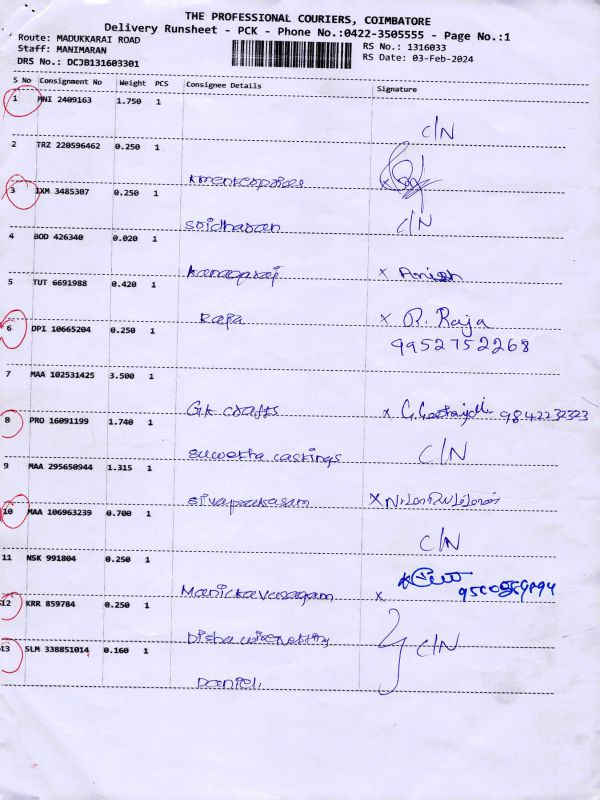 THE PROFESSIONAL COURIERS, COIMBATORE
Delivery Runsheet - PCK - Phone No.:0422-3505555 - Page No.:1
Route: MADUKKARAI ROAD
RS No.: 1316033
Staff: MANIMARAN
RS Date: 03-Feb-2024
DRS No.: DCJB131603301
S No Consignment No Weight PCS Consignee Details Signature
1 MNI 2409163 1.750 1
C/N
2 TRZ 220596462 0.250 1
x
3 IXM 3485307 0.250 1 C/N
Sridharan
4 BOD 426340 0.020 1
Kanagaraj x Anish
5 TUT 6691988 0.420 1
Raja x R. Raja
6 DPI 10665204 0.250 1 9952752268
7 MAA 102531425 3.500 1
G.K crafts x 9842232323
8 PRO 16091199 1.740 1
suwetha castings C/N
9 MAA 295650944 1.315 1
sivaprakasam x
10 MAA 106963239 0.700 1
C/N
11 NSK 991804 0.250 1
Manickavasagam x
12 KRR 859784 0.250 1
Disha
13 SLM 338851014 0.160 1 C/N
Daniel.